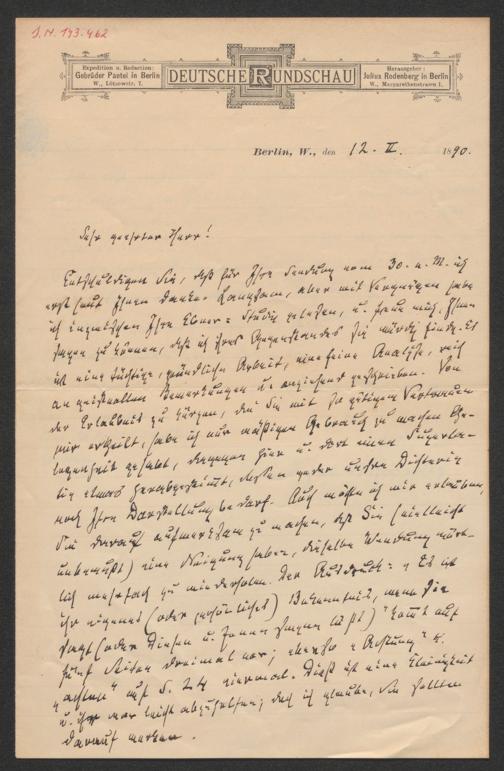 I.N. 193.462
Expedition u. Redaction:
Gebrüder Paetel in Berlin
W., Lützowstr. 7.
DEUTSCHE RUNDSCHAU
Herausgeber:
Julius Rodenberg in Berlin
W., Margarethenstrasse 1.
Berlin, W., den 12. II. 1890.
Sehr geehrter Herr!
Entschuldigen Sie, daß für Ihre Sendung vom 30. v. M. ich
erst heut Ihnen danke. Langsam, aber mit Vergnügen habe
ich inzwischen Ihre Ebner-Studie gelesen, u. freue mich, Ihnen
sagen zu können, daß ich ihres Gegenstandes sie würdig finde. Es
ist eine tüchtige, gründliche Arbeit, eine feine Analyse, reich
an geistvollen Bemerkungen u. anziehend geschrieben. Von
der Erlaubniß zu kürzen, die Sie mit so gütigem Vertrauen
mir ertheilt, habe ich nur mäßigen Gebrauch zu machen Ge-
legenheit gehabt, dagegen hier u. dort einen Superla-
tiv etwas herabgestimmt, dessen weder unsere Dichterin
noch Ihre Darstellung bedarf. Auch möchte ich mir erlauben,
Sie darauf aufmerksam zu machen, daß Sie (vielleicht
unbewußt) eine Neigung haben, dieselbe Wendung wört-
lich mehrfach zu wiederholen. Der Ausdruck: "Es ist
ihr eigenes (oder persönliches) Bekenntniß, wenn sie
sagt (oder Diesen u. Jenen sagen läßt)" kommt auf
fünf Seiten dreimal vor; ebenso "Achtung" u.
"achten" auf S. 24 viermal. Dieß ist eine Kleinigkeit
u. hier war leicht abzuhelfen; doch ich glaube, Sie sollten
darauf merken.